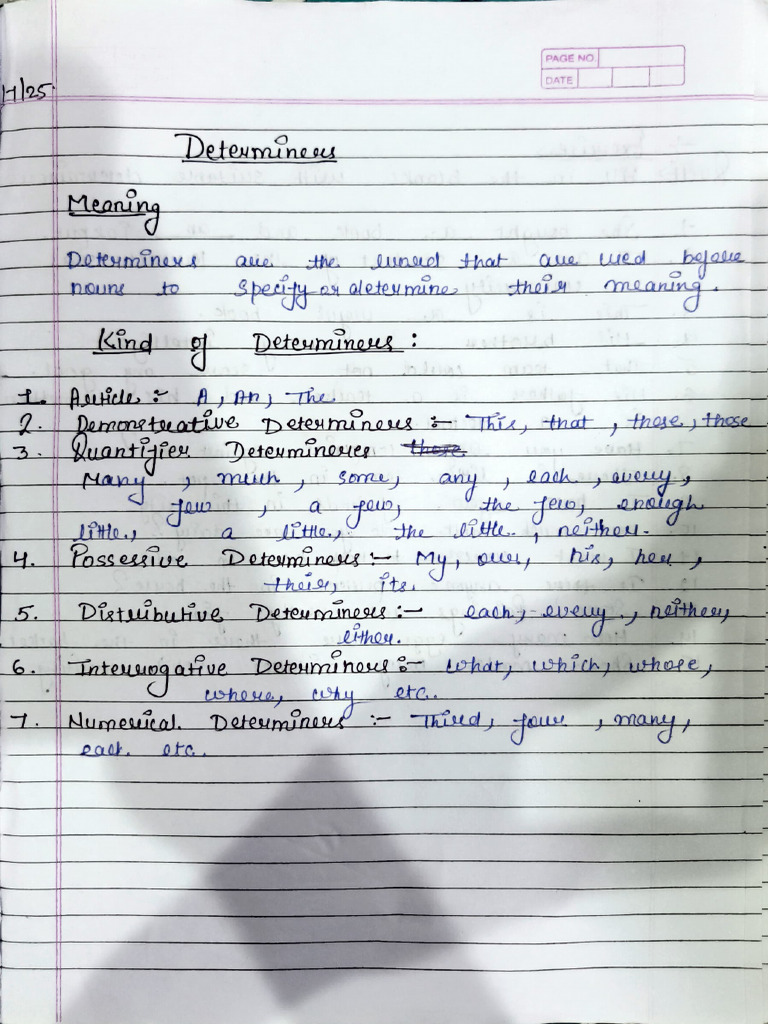 PAGE NO.
DATE
/25
Determiners
Meaning
Determiners are the word that are used before
nouns to specify or determine their meaning.
Kind of Determiners :
1. Article :- A, An, The
2. Demonstrative Determiners :- This, that, these, those
3. Quantifier Determiners
Many, much, some, any, each, every,
few, a few, the few, enough
little, a little, the little, neither.
4. Possessive Determiners :- My, our, his, her,
their, its.
5. Distributive Determiners :- each, every, neither,
either.
6. Interrogative Determiners :- what, which, whose,
where, why etc.
7. Numerical Determiners :- Third, four, many,
each etc.